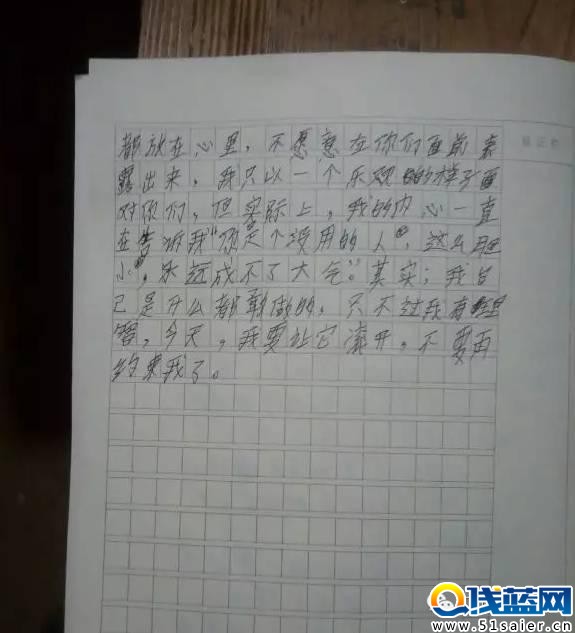 都放在心里，不愿意在你们面前表
露出来，我只以一个乐观的样子面
对你们，但实际上，我的内心一直
在告诉我“你是个没用的人，这么胆
小，永远成不了大气。”其实；我自
己是什么都敢做的，只不过我有理
智，今天，我要让它滚开，不要再
约束我了。
浅蓝网
www.51saier.cn